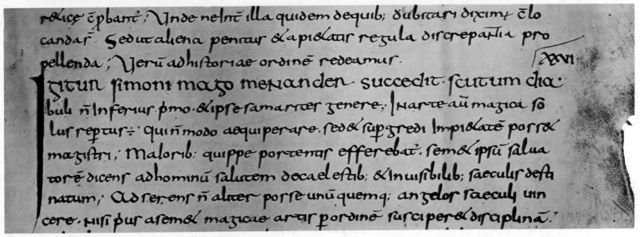 & lice c̄pbant̄; Unde ne int̄ illa quidem dequib; dubitari diximꝰ c̄lo
candas̄. Sed ut aliena penitus & apietatis regula discrepantia pro
pellenda; Verū adhistoriae ordinē redeamus.
XXVI
Igitur simoni mago menander succedit. scutum dia
buli n̄ inferius p̄mo & ipse samarites genere; Inarte aū magica so
lus repertus÷ qui n̄ modo aequiperare. sed & sup gredi impietatē poss&
magistri; Maiorib; quippe portentis efferebat̄. sem& ipsū salua
torē dicens adhominū salutem decaelestib; & inuisibilib; saeculis desti
natum; Adserens n̄ aliter posse unū quemq; angelos saeculi uin
cere. nisi p̄us asem& magicae artis p ordinē susciper& disciplinā;